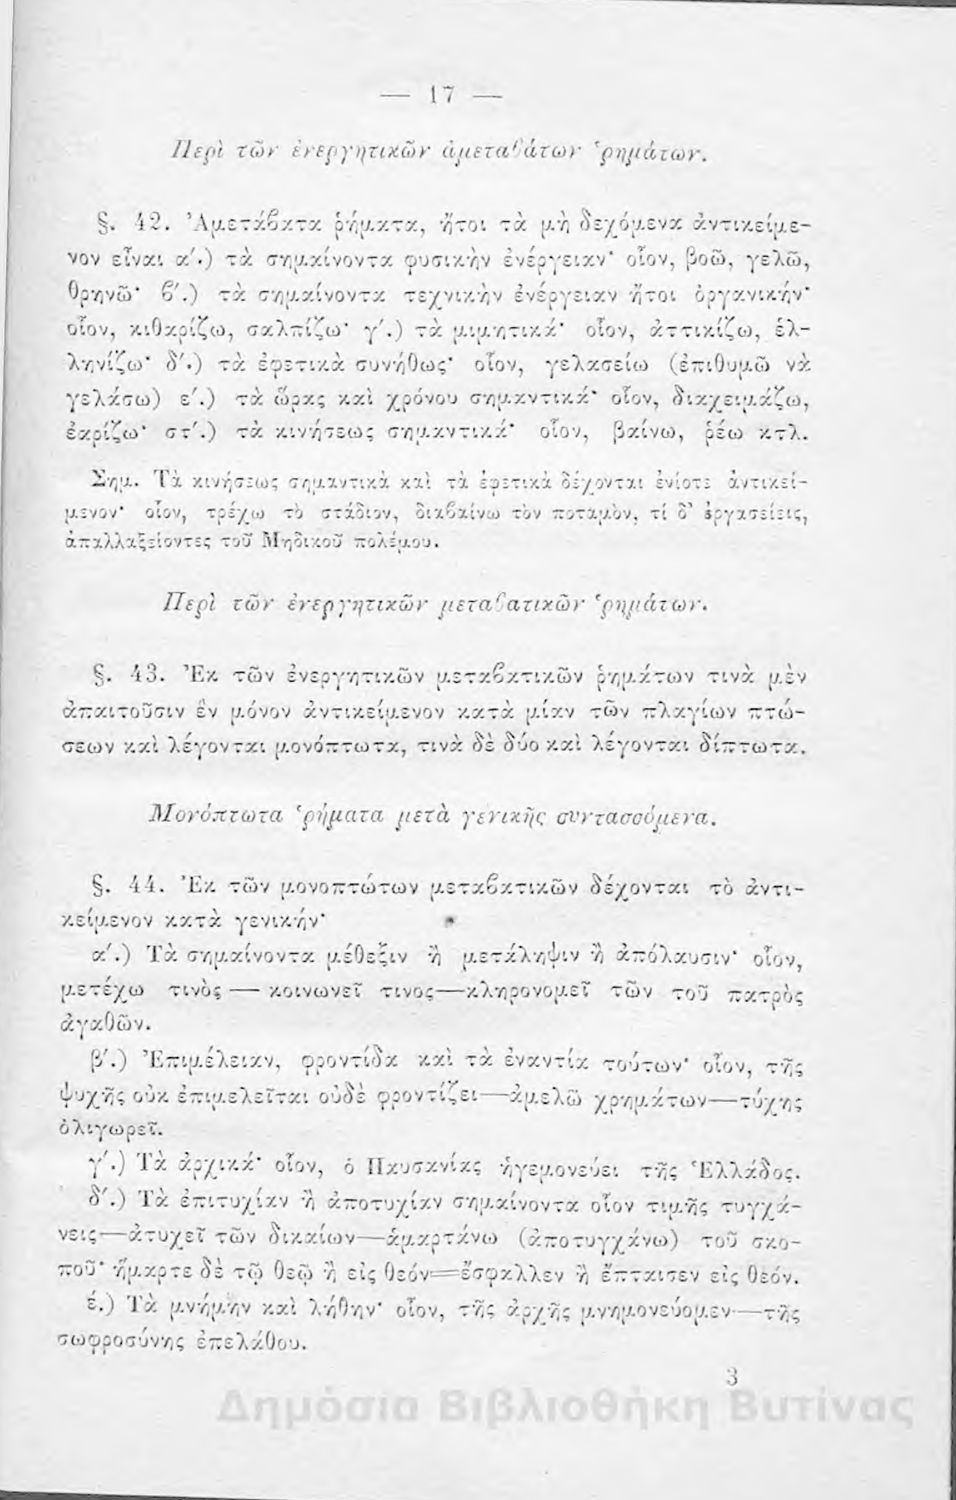 — 17 —
Περὶ τῶν ἐνεργητικῶν ἀμεταϐάτων ῾ρημάτων.
§. 42. Ἀμετάϐατα ῥήματα, ἤτοι τὰ μὴ δεχόμενα ἀντικείμε-
νον εἶναι α΄.) τὰ σημαίνοντα φυσικὴν ἐνέργειαν· οἷον, βοῶ, γελῶ,
θρηνῶ· ϐ΄.) τὰ σημαίνοντα τεχνικὴν ἐνέργειαν ἤτοι ὀργανικήν·
οἷον, κιθαρίζω, σαλπίζω· γ΄.) τὰ μιμητικά· οἷον, ἀττικίζω, ἑλ-
ληνίζω· δ΄.) τὰ ἐφετικὰ συνήθως· οἷον, γελασείω (ἐπιθυμῶ νὰ
γελάσω) ε΄.) τὰ ὥρας καὶ χρόνου σημαντικά· οἷον, διαχειμάζω,
ἐαρίζω· στ΄.) τὰ κινήσεως σημαντικά· οἷον, βαίνω, ῥέω κτλ.
Σημ. Τὰ κινήσεως σημαντικὰ καὶ τὰ ἐφετικὰ δέχονται ἐνίοτε ἀντικεί-
μενον· οἷον, τρέχω τὸ στάδιον, διαϐαίνω τὸν ποταμὸν, τί δ' ἐργασείεις,
ἀπαλλαξείοντες τοῦ Μηδικοῦ πολέμου.
Περὶ τῶν ἐνεργητικῶν μεταϐατικῶν ῾ρημάτων.
§. 43. Ἐκ τῶν ἐνεργητικῶν μεταϐατικῶν ῥημάτων τινὰ μὲν
ἀπαιτοῦσιν ἓν μόνον ἀντικείμενον κατὰ μίαν τῶν πλαγίων πτώ-
σεων καὶ λέγονται μονόπτωτα, τινὰ δὲ δύο καὶ λέγονται δίπτωτα.
Μονόπτωτα ῾ρήματα μετὰ γενικῆς συντασσόμενα.
§. 44. Ἐκ τῶν μονοπτώτων μεταϐατικῶν δέχονται τὸ ἀντι-
κείμενον κατὰ γενικήν·
α΄.) Τὰ σημαίνοντα μέθεξιν ἢ μετάληψιν ἢ ἀπόλαυσιν· οἷον,
μετέχω τινὸς — κοινωνεῖ τινος—κληρονομεῖ τῶν τοῦ πατρὸς
ἀγαθῶν.
β΄.) Ἐπιμέλειαν, φροντίδα καὶ τὰ ἐναντία τούτων· οἷον, τῆς
ψυχῆς οὐκ ἐπιμελεῖται οὐδὲ φροντίζει—ἀμελῶ χρημάτων—τύχης
ὀλιγωρεῖ.
γ΄.) Τὰ ἀρχικά· οἷον, ὁ Παυσανίας ἡγεμονεύει τῆς Ἑλλάδος.
δ΄.) Τὰ ἐπιτυχίαν ἢ ἀποτυχίαν σημαίνοντα οἷον τιμῆς τυγχά-
νεις—ἀτυχεῖ τῶν δικαίων—ἁμαρτάνω (ἀποτυγχάνω) τοῦ σκο-
ποῦ· ἥμαρτε δὲ τῷ Θεῷ ἢ εἰς Θεόν=ἔσφαλλεν ἢ ἔπταισεν εἰς Θεόν.
έ.) Τὰ μνήμην καὶ λήθην· οἷον, τῆς ἀρχῆς μνημονεύομεν—τῆς
σωφροσύνης ἐπελάθου.
3
Δημόσια Βιβλιοθήκη Βυτίνας